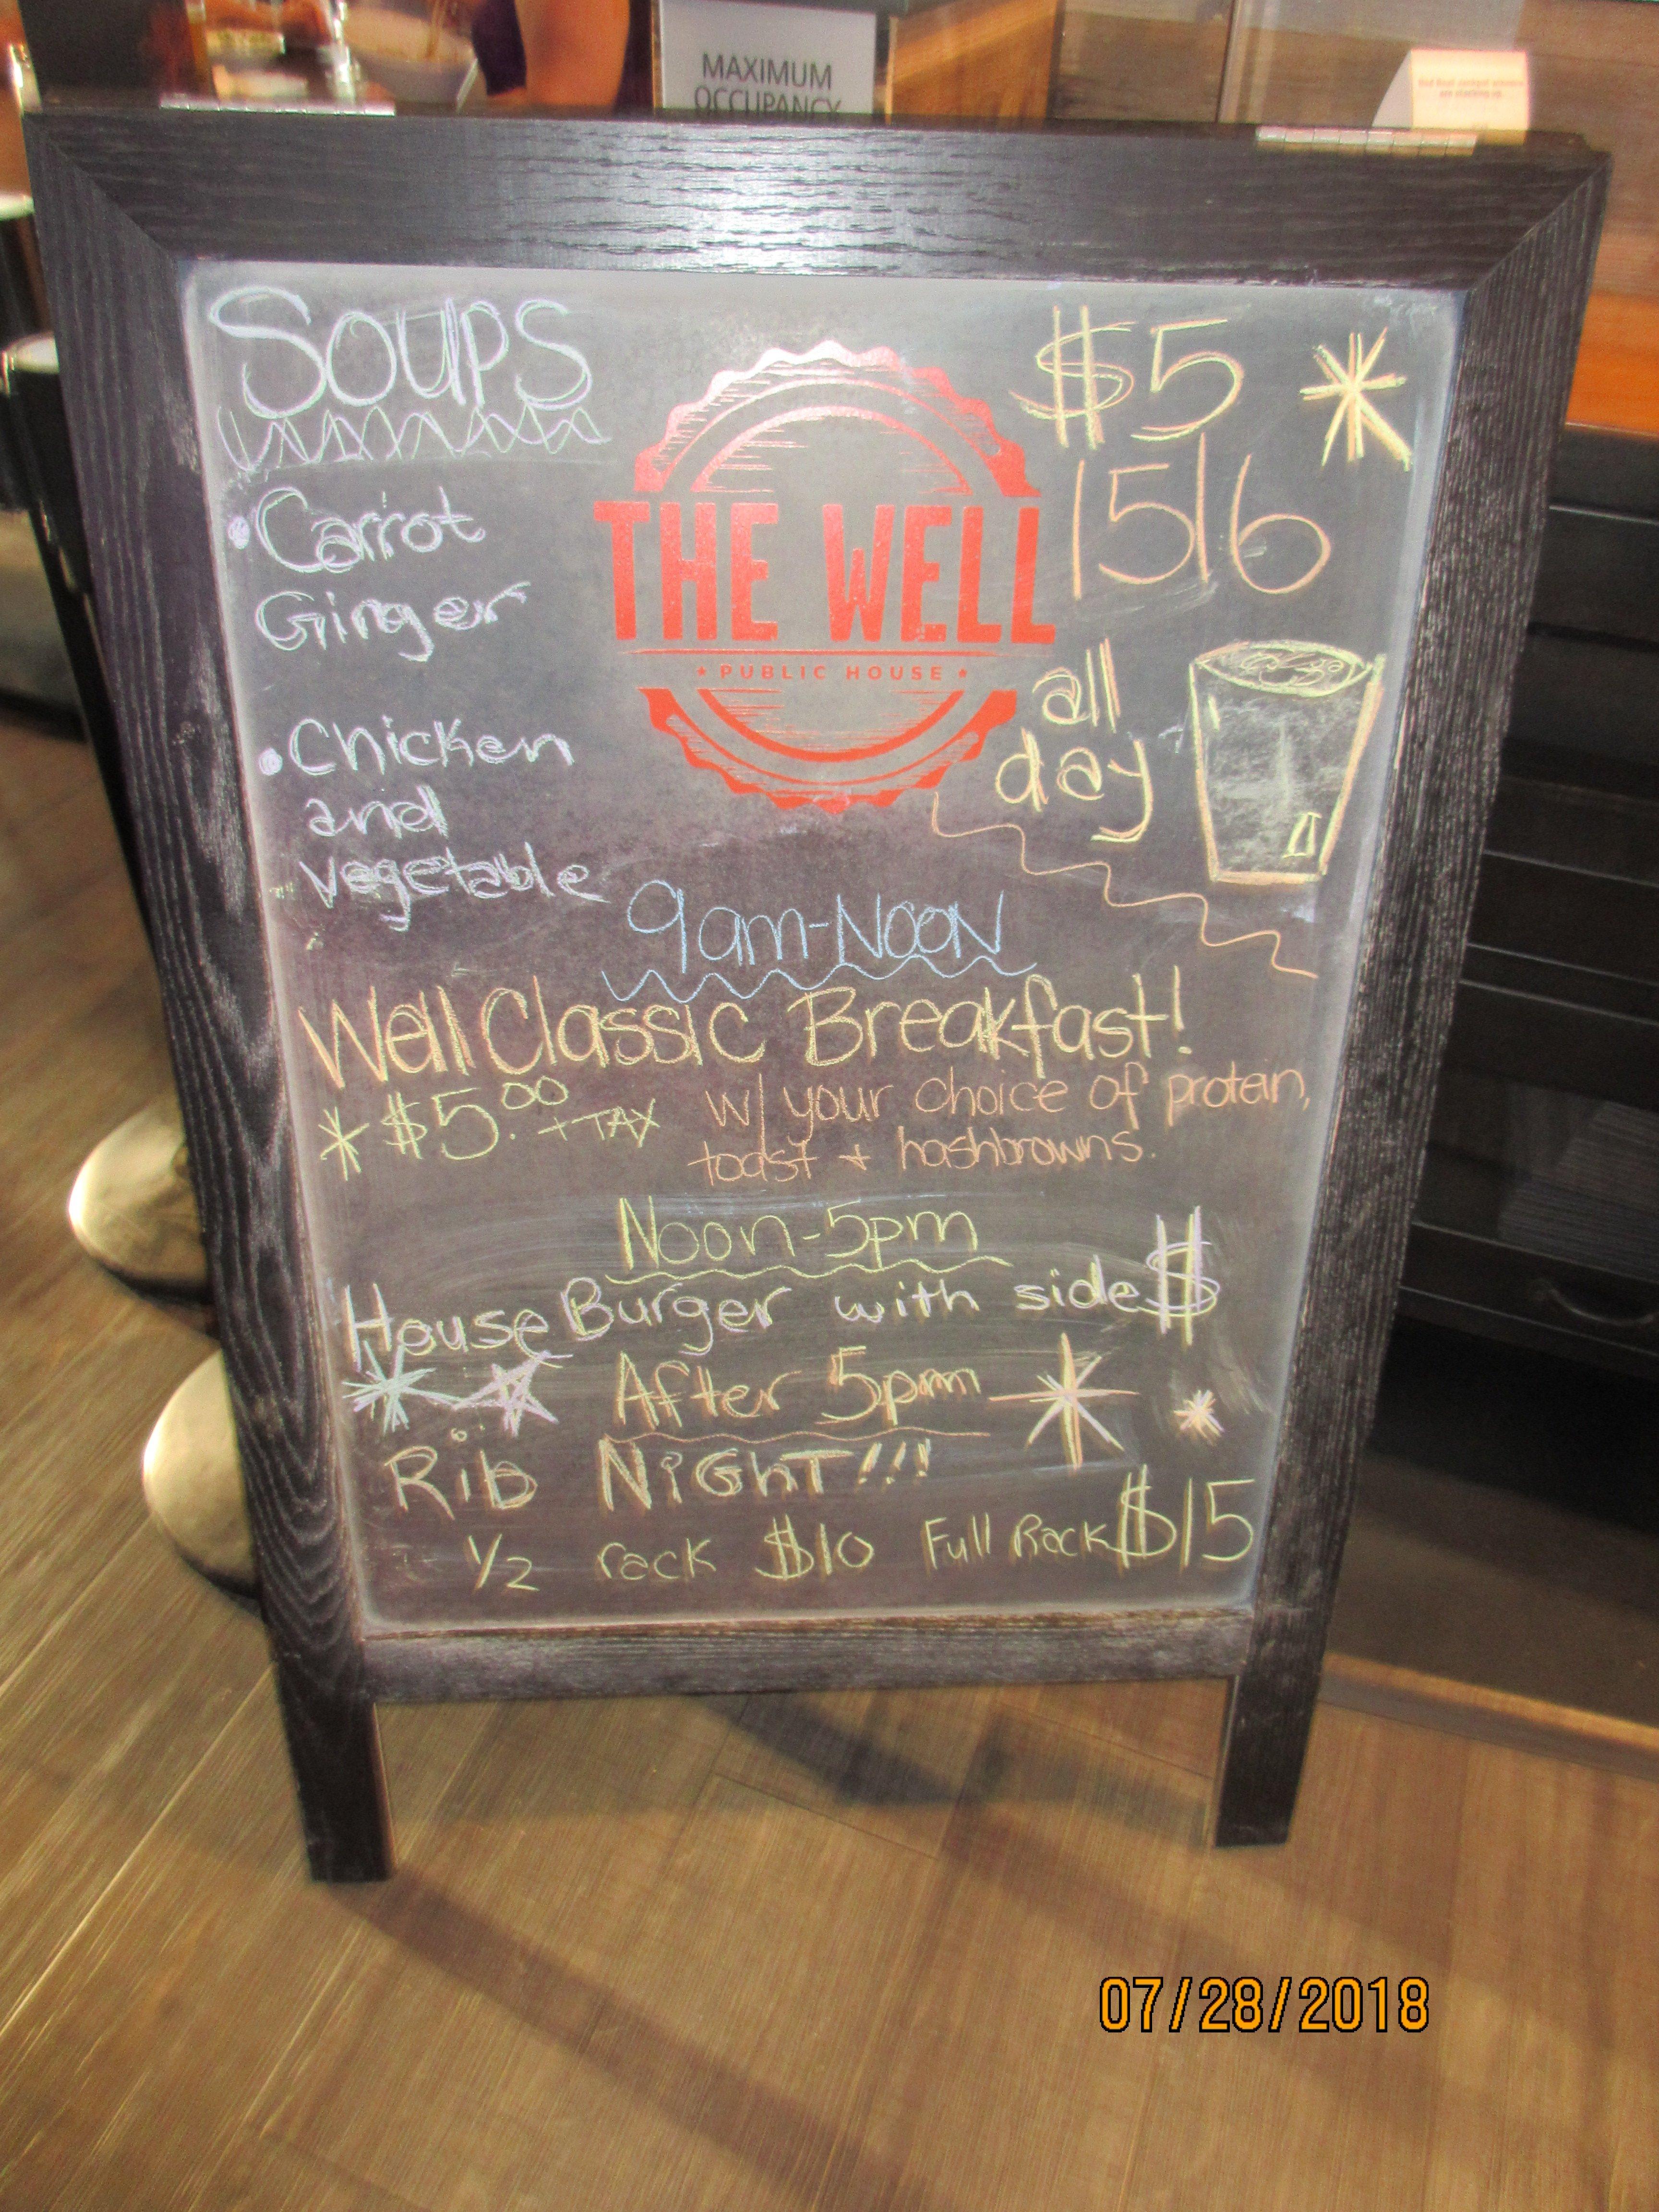 MAXIMUM
OCCUPANCY
SOUPS
• Carrot
Ginger
• Chicken
and
vegetable
THE WELL
PUBLIC HOUSE
$5
1516
all
day
9am-Noon
Well Classic Breakfast!
$5.00 + TAX w/ your choice of protein,
toast + hashbrowns.
Noon-5pm
House Burger with side $
After 5pm
Rib NiGhT!!!
1/2 rack $10 Full Rack $15
07/28/2018